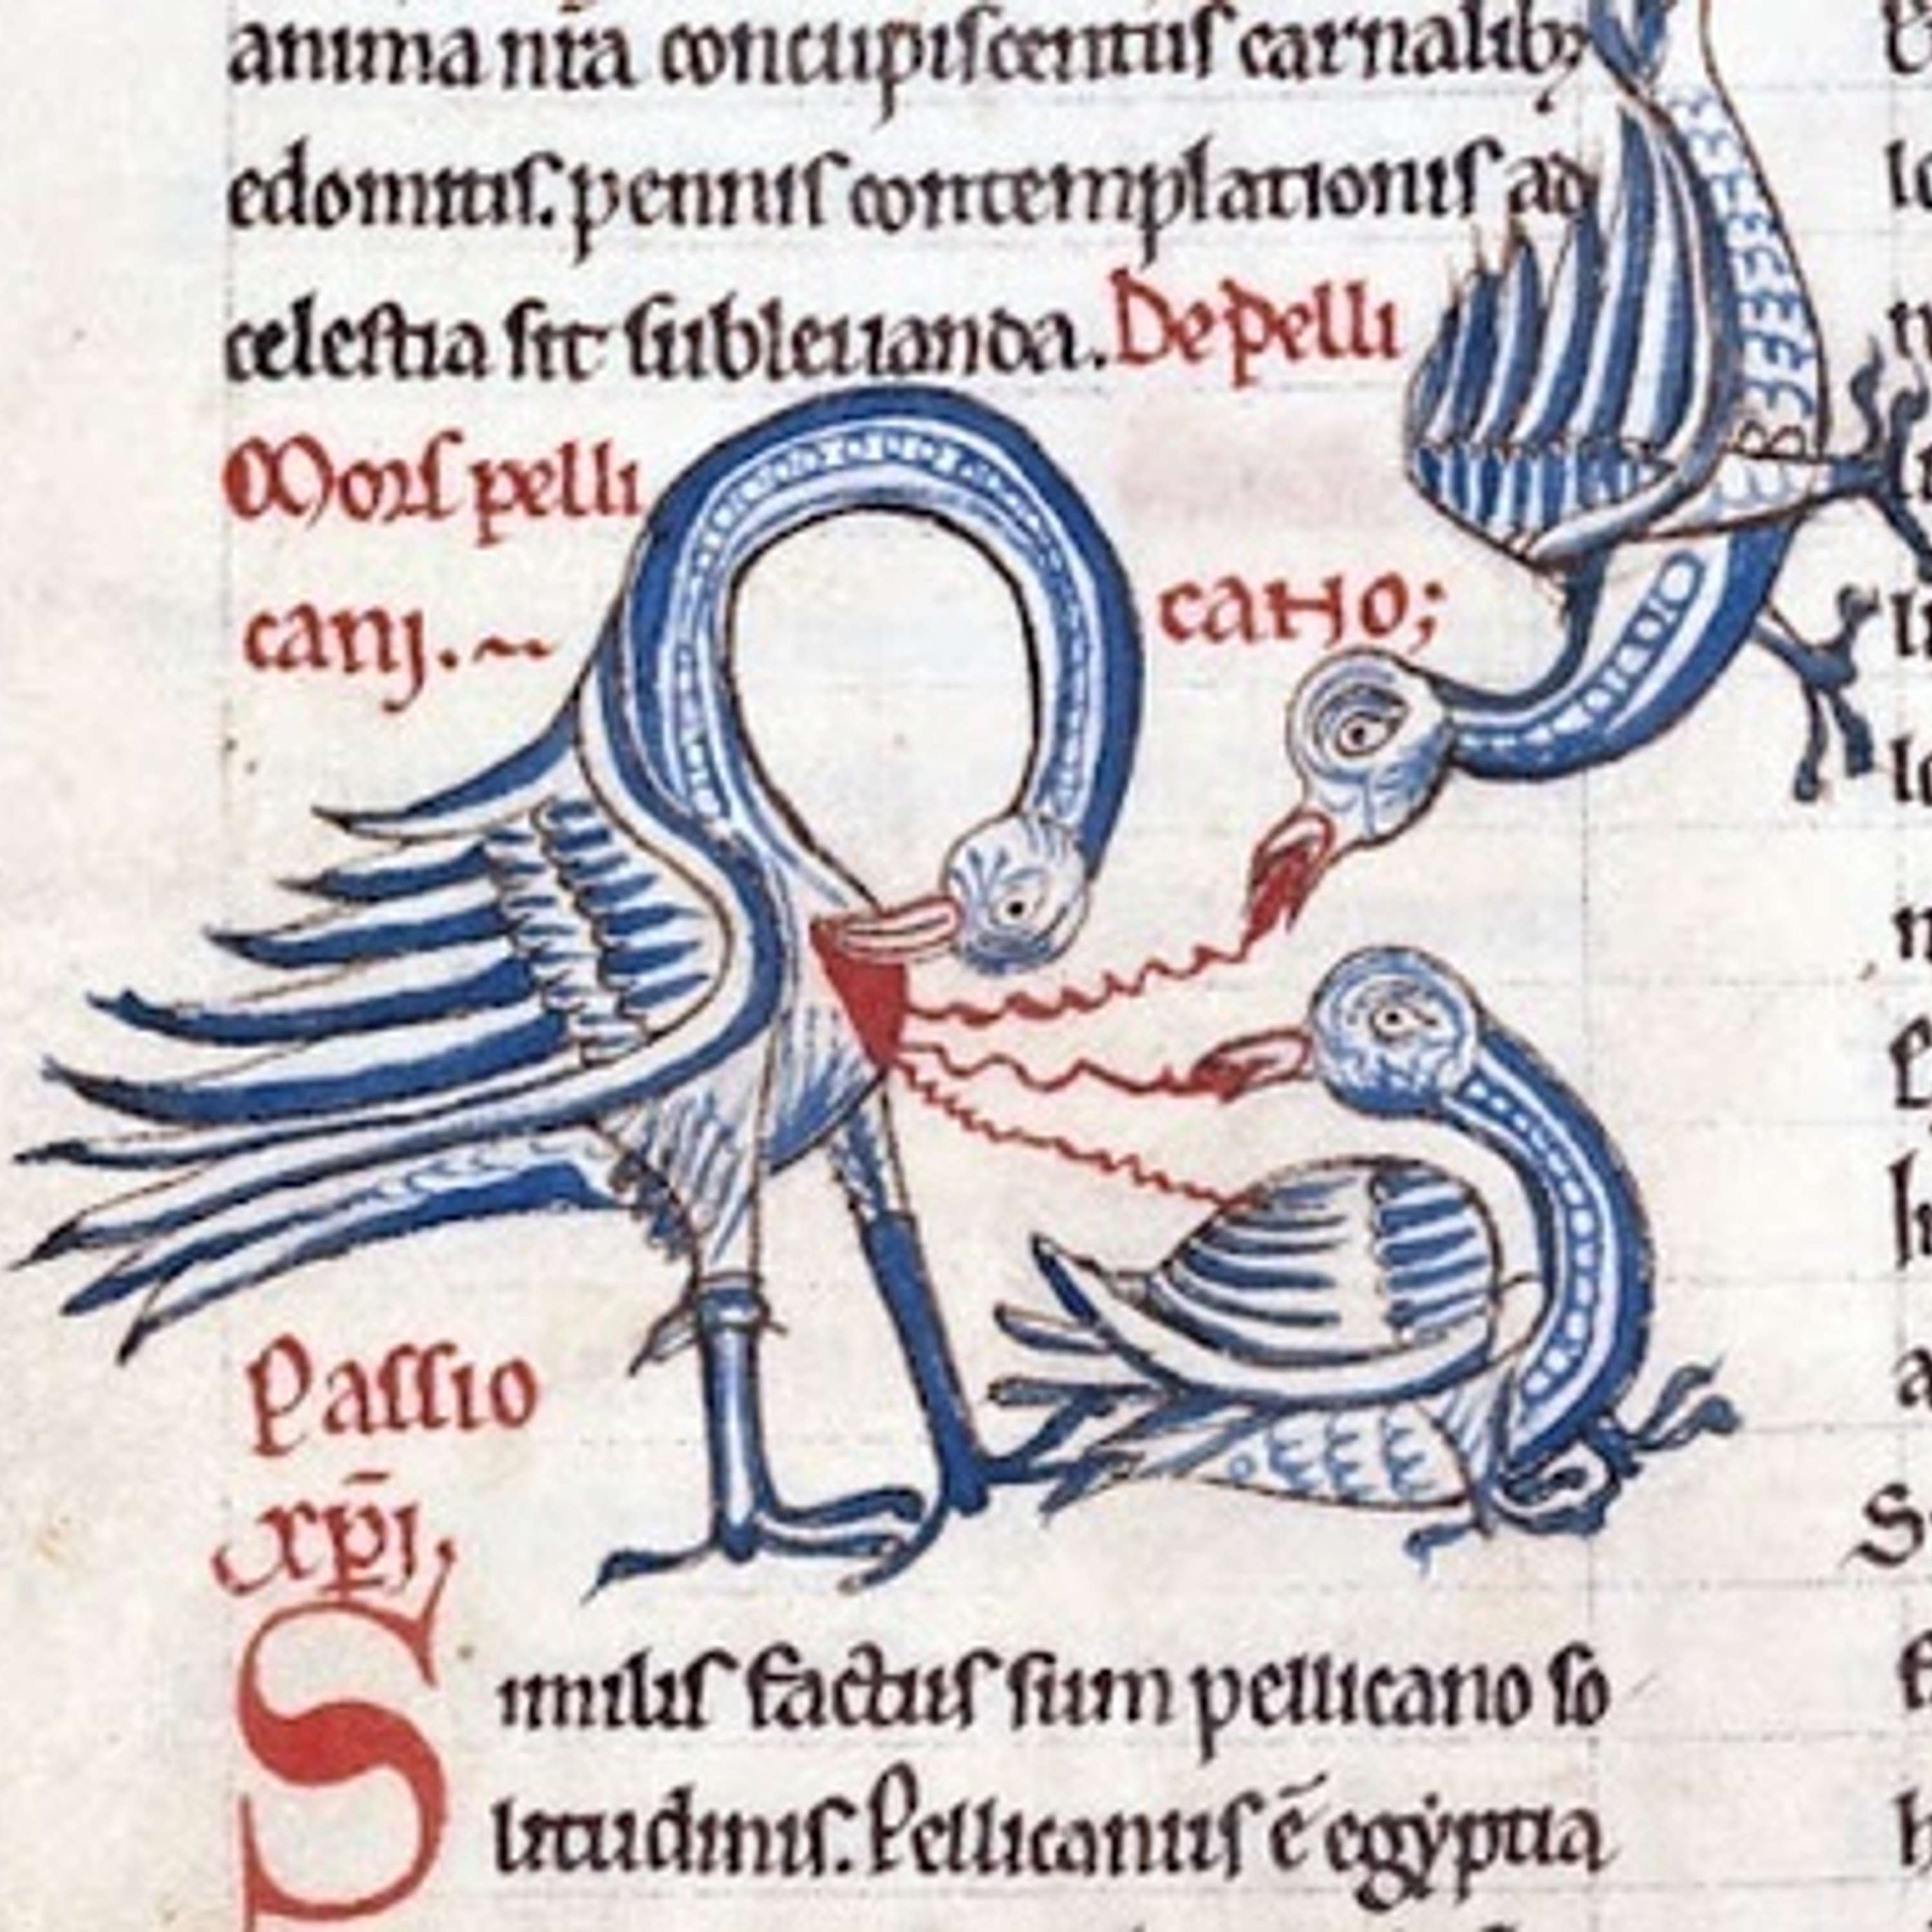 anima nr̃a concupiscentiis carnalib;
edomitis. pennis contemplationis ad
celestia sit subleuanda. De pelli
Mors pelli
cano;
canj. ~
Passio
xp̄i,
Similis factus sum pellicano so
litudinis. Pellicanus ē egẏptia